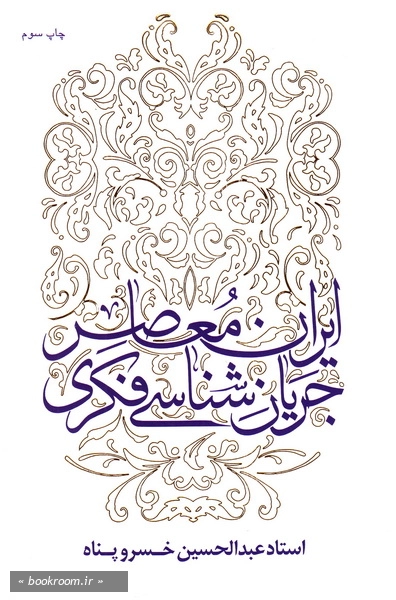 چاپ سوم
ایران معاصر
جریان شناسی فکری
استاد عبدالحسین خسروپناه
« bookroom.ir »